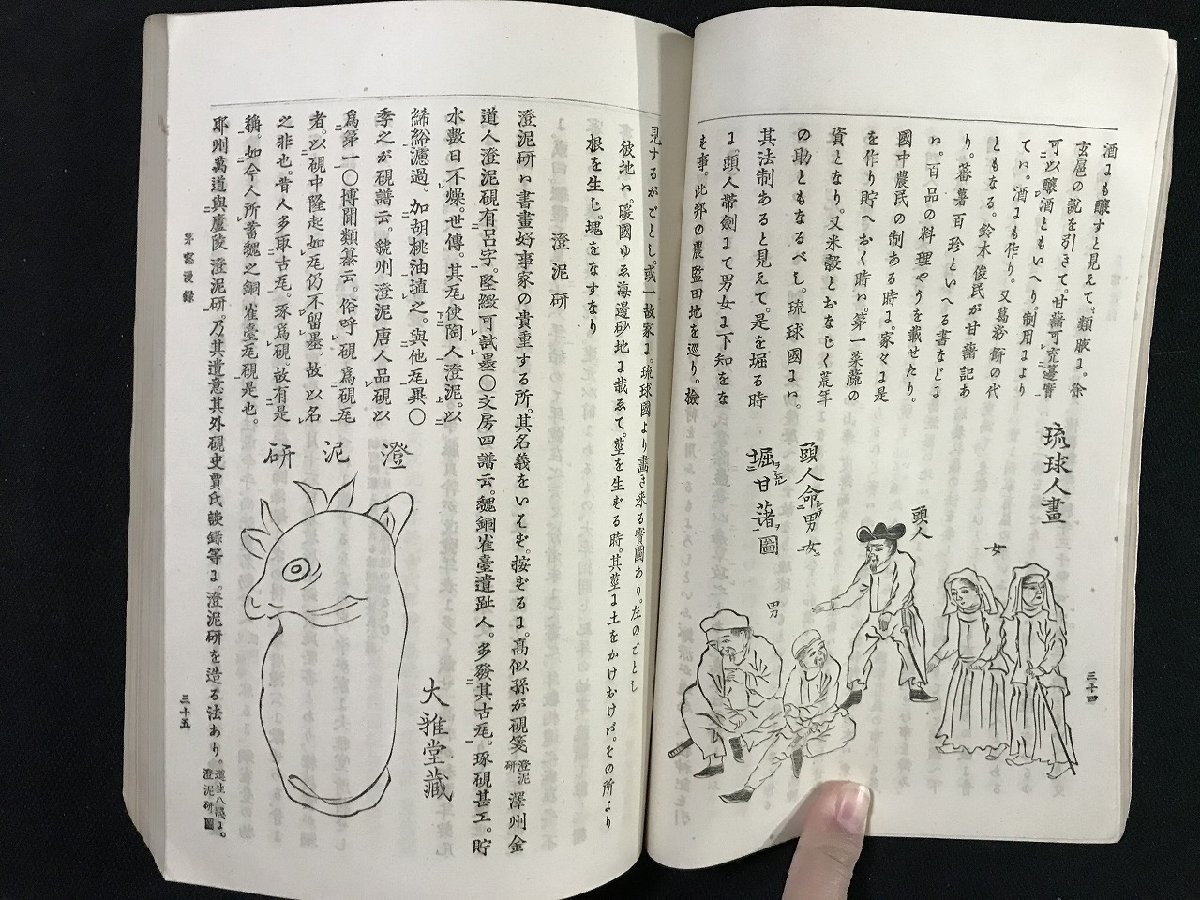 酒にも醸すと見えて、類腋に。徐
玄扈の説を引きて。甘藷可充籩實
可以醸酒ともいへり制用により
てハ。酒にも作り。又葛粉餅の代
ともなる。鈴木俊民が甘藷記あ
り。蕃薯百珍といへる書などに
ハ。百品の料理やうを載せたり。
國中農民の制ある時に。家々に是
を作り貯へおく時ハ。第一菜蔬の
資となり。又米穀とおなじく荒年
の助ともなるべし。琉球國にハ。
其法制あると見えて。是を堀る時
に頭人帶劍にて男女に下知をな
す事。此邦の農監田地を巡り。檢
琉球人畫
頭人
女
頭人命男女
堀甘藷圖
男
三十四
見するがごとし。或一故家に。琉球國より畫き来る實圖あり。左のごとし
彼地ハ。暖國ゆゑ海邊砂地に栽ゑて。莖を生ずる時。其莖に土をかけおけバ。その所より
根を生じ。塊をなすなり
澄泥研
澄泥研ハ書畫好事家の貴重する所。其名義をいはず。按ずるに。高似孫が硯箋澄泥研澤州金
道人澄泥硯有呂字。堅緻可試墨〇文房四譜云。魏銅雀臺遺趾人。多發其古瓦。琢硯甚工。貯
水數日不燥。世傳。其瓦使陶人澄泥。以
絺綌濾過。加胡桃油漬之。與他瓦異〇
季之が硯譜云。虢州澄泥唐人品硯以
爲第一〇博聞類纂云。俗呼硯爲硯瓦
者。以硯中隆起如瓦仍不留墨故以名
之非也。昔人多取古瓦。琢爲硯故有是
稱。如今人所蓄魏之銅雀臺瓦硯是也。
耶州萬道與廬陵澄泥研。乃其遺意其外硯史賈氏談録等に。澄泥研を造る法あり。遵生八牋に。澄泥研圖
澄泥研
大雅堂藏
茅窓漫録
三十五